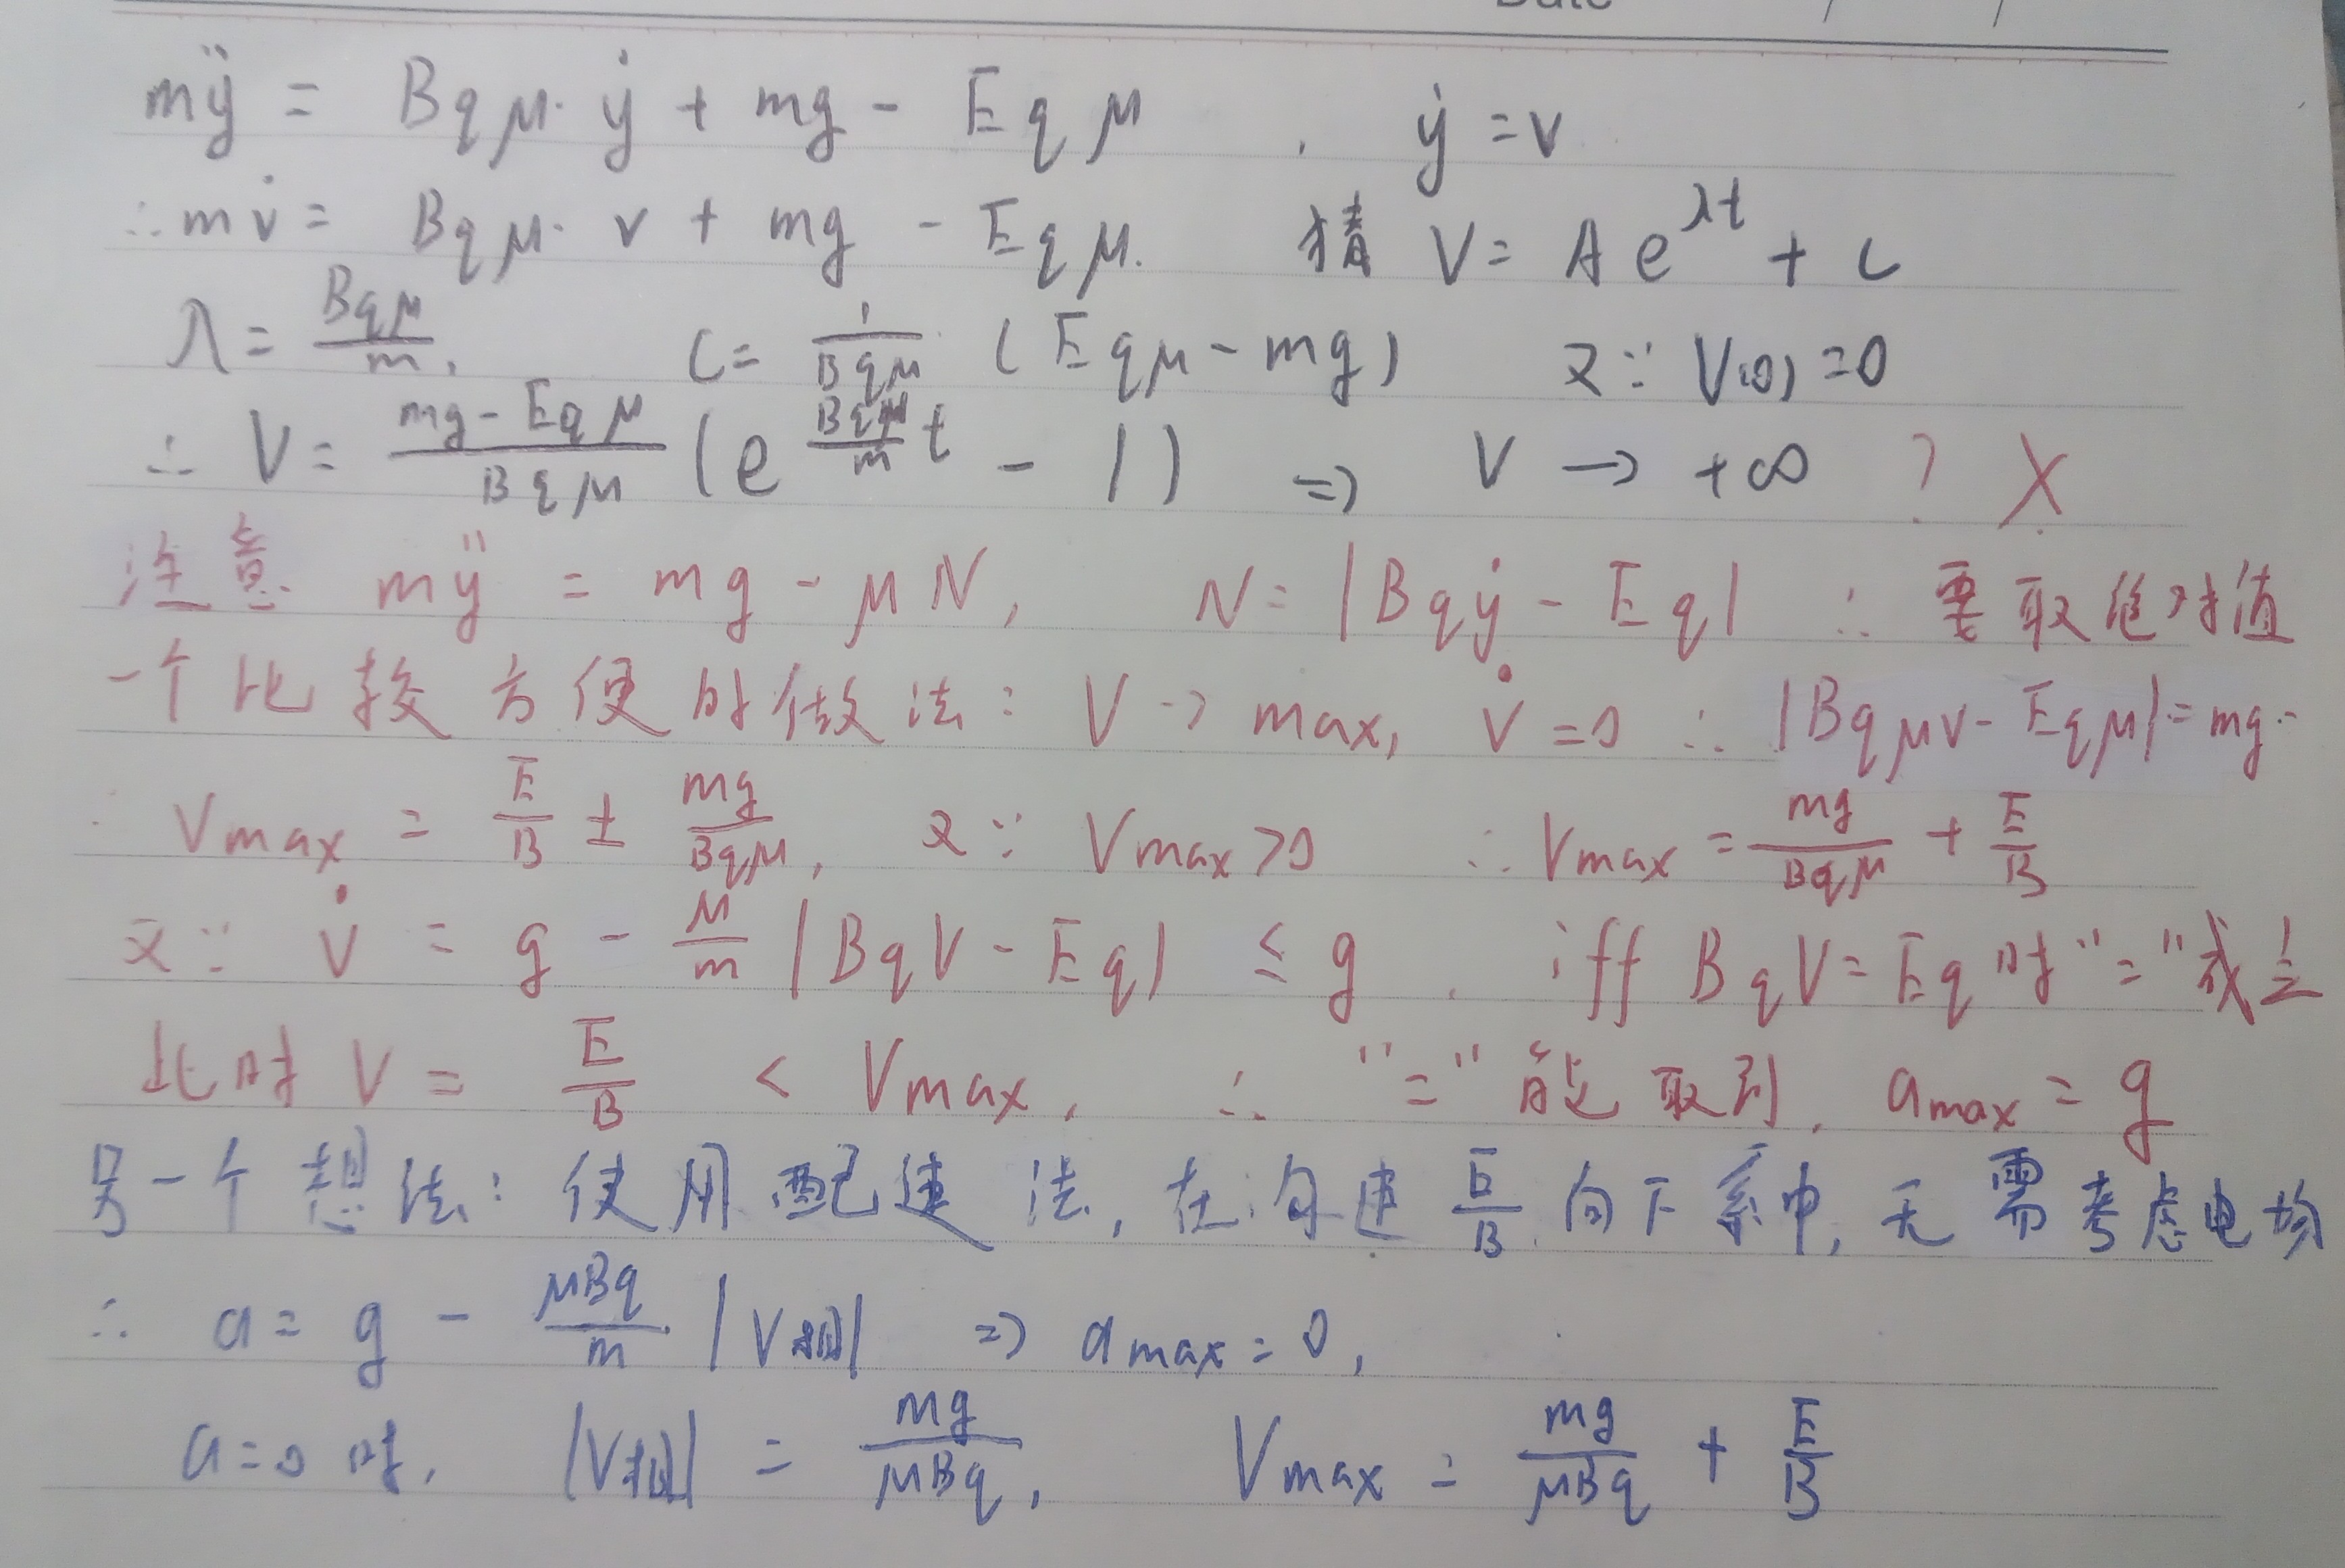 Date / /
mÿ = Bqμ·ẏ + mg - Eqμ , ẏ = v
∴ mv̇ = Bqμ·v + mg - Eqμ. 猜 V = Ae^{λt} + C
λ = \frac{Bqμ}{m}, C = \frac{1}{Bqμ} (Eqμ - mg) 又∵ V(0) = 0
∴ V = \frac{mg - Eqμ}{Bqμ} (e^{\frac{Bqμ}{m}t} - 1) ⇒ V → +∞ ? X
注意 mÿ = mg - μN, N = |Bqẏ - Eq| ∵ 要取绝对值
一个比较方便的做法: V → max, v̇ = 0 ∴ |Bqμv - Eqμ| = mg.
∴ Vmax = \frac{E}{B} ± \frac{mg}{Bqμ}, 又∵ Vmax > 0 ∴ Vmax = \frac{mg}{Bqμ} + \frac{E}{B}
又∵ v̇ = g - \frac{μ}{m} |BqV - Eq| ≤ g. iff BqV = Eq 时 "=" 成立
此时 V = \frac{E}{B} < Vmax, ∴ "=" 能取到, amax = g
另一个想法: 使用配速法, 在匀速 \frac{E}{B} 向下系中, 无需考虑电场
∴ a = g - \frac{μBq}{m} |V相| ⇒ amax = 0,
a = 0 时, |V相| = \frac{mg}{μBq}, Vmax = \frac{mg}{μBq} + \frac{E}{B}